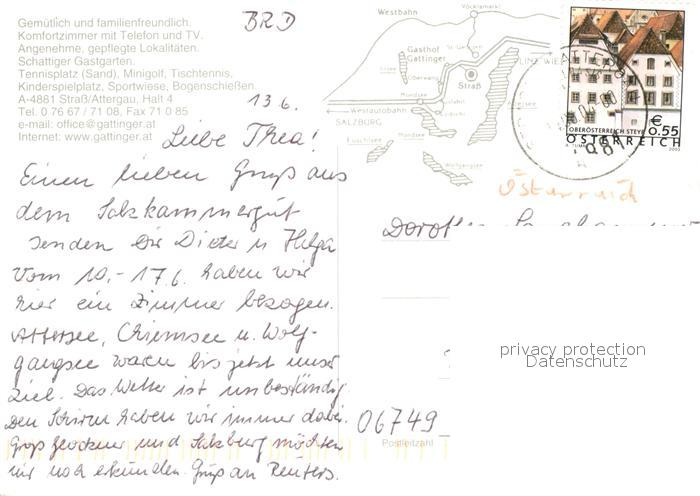 Gemütlich und familienfreundlich.
Komfortzimmer mit Telefon und TV.
Angenehme, gepflegte Lokalitäten.
Schattiger Gastgarten.
Tennisplatz (Sand), Minigolf, Tischtennis,
Kinderspielplatz, Sportwiese, Bogenschießen.
A-4881 Straß/Attergau, Halt 4
Tel. 0 76 67 / 71 08, Fax 71 0 85
e-mail: office@gattinger.at
Internet: www.gattinger.at
BRD
Westbahn
Vöcklamarkt
Gasthof
Gattinger
St. Georgen
LINZ-WIEN
Oberwang
Straß
Mondsee
Westautobahn
SALZBURG
Mondsee
Fuschlsee
Wolfgangsee
OBERÖSTERREICH STEYR
€ 0.55
ÖSTERREICH
2003
13.6.
Liebe Thea!
Einen lieben Gruß aus
dem Salzkammergut
senden Dir Dieter u Helga
Vom 10.-17.6. haben wir
hier ein Zimmer bezogen.
Attersee, Chiemsee u. Wolf-
gangsee waren bis jetzt unser
Ziel. Das Wetter ist unbeständig
Den Schirm haben wir immer dabei.
Großglockner und Salzburg möchten
wir noch erkunden. Gruß an Reuters.
Österreich
06749
Postleitzahl
privacy protection
Datenschutz